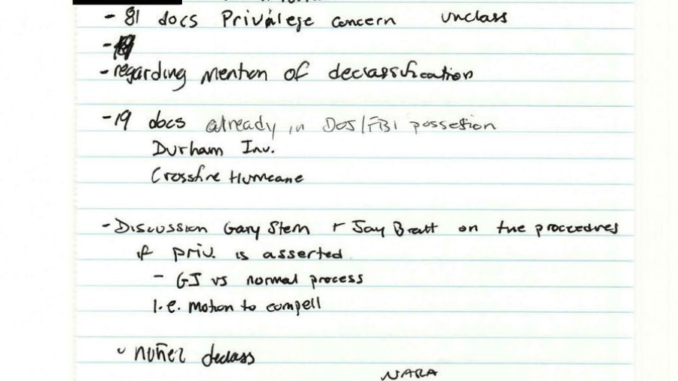 - 81 docs Privilege concern unclass
-
- regarding mention of declassification
- 19 docs already in DOJ/FBI possession
Durham Inv.
Crossfire Hurricane
- Discussion Gary Stern + Jay Bratt on the procedures
if priv. is asserted
- GJ vs normal process
I.e. Motion to compell
nuñez declass
NARA